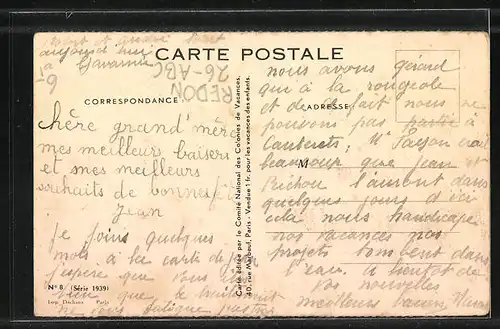 aujourd'hui
CARTE POSTALE
REDON
26-ABC
CORRESPONDANCE
ADRESSE
chère grand'mère
mes meilleurs baisers
et mes meilleurs
souhaits de bonne fête
Jean
Je joins quelques
mots à la carte de Jean
j'espère que vous
que le
ne vous fatigue pas trop
Carte éditée par le Comité National des Colonies de Vacances.
40, rue Marbeuf, Paris - Vendue 1 fr. pour les vacances des enfants.
nous avons gérard
qui a la rougeole
et de ce fait nous ne
pouvons pas partir à
M
beaucoup que Jean et
l'aurent dans
quelques jours d'ici
cela nous handicape
nos vacances nos
projets tombent dans
l'eau. à bientôt de
vos nouvelles
meilleurs baisers
N° 8 (Série 1939)
Imp. Paris